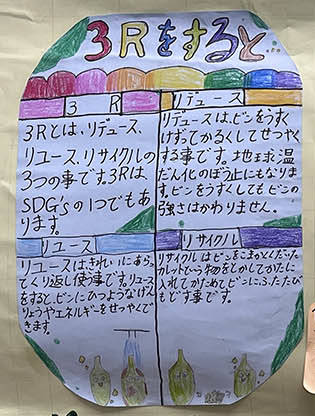 3Rをすると
3R
3Rとは、リデュース、
リユース、リサイクルの
3つの事です。3Rは
SDG'sの1つでもあ
ります。
リデュース
リデュースは、ビンをうすく
けずってかるくしてせつやく
する事です。地球温
だん化のぼう止にもなりま
す。ビンをうすくしてもビンの
強さはかわりません。
リユース
リユースはきれいにあらっ
てくり返し使う事です。リユース
をすると、ビンにひつような
りょうやエネルギーをせつやくで
きます。
リサイクル
リサイクルはビンをこまかくくだいた
カレットという物をとかしてかたに
入れてかためてビンにふたたび
もどす事です。